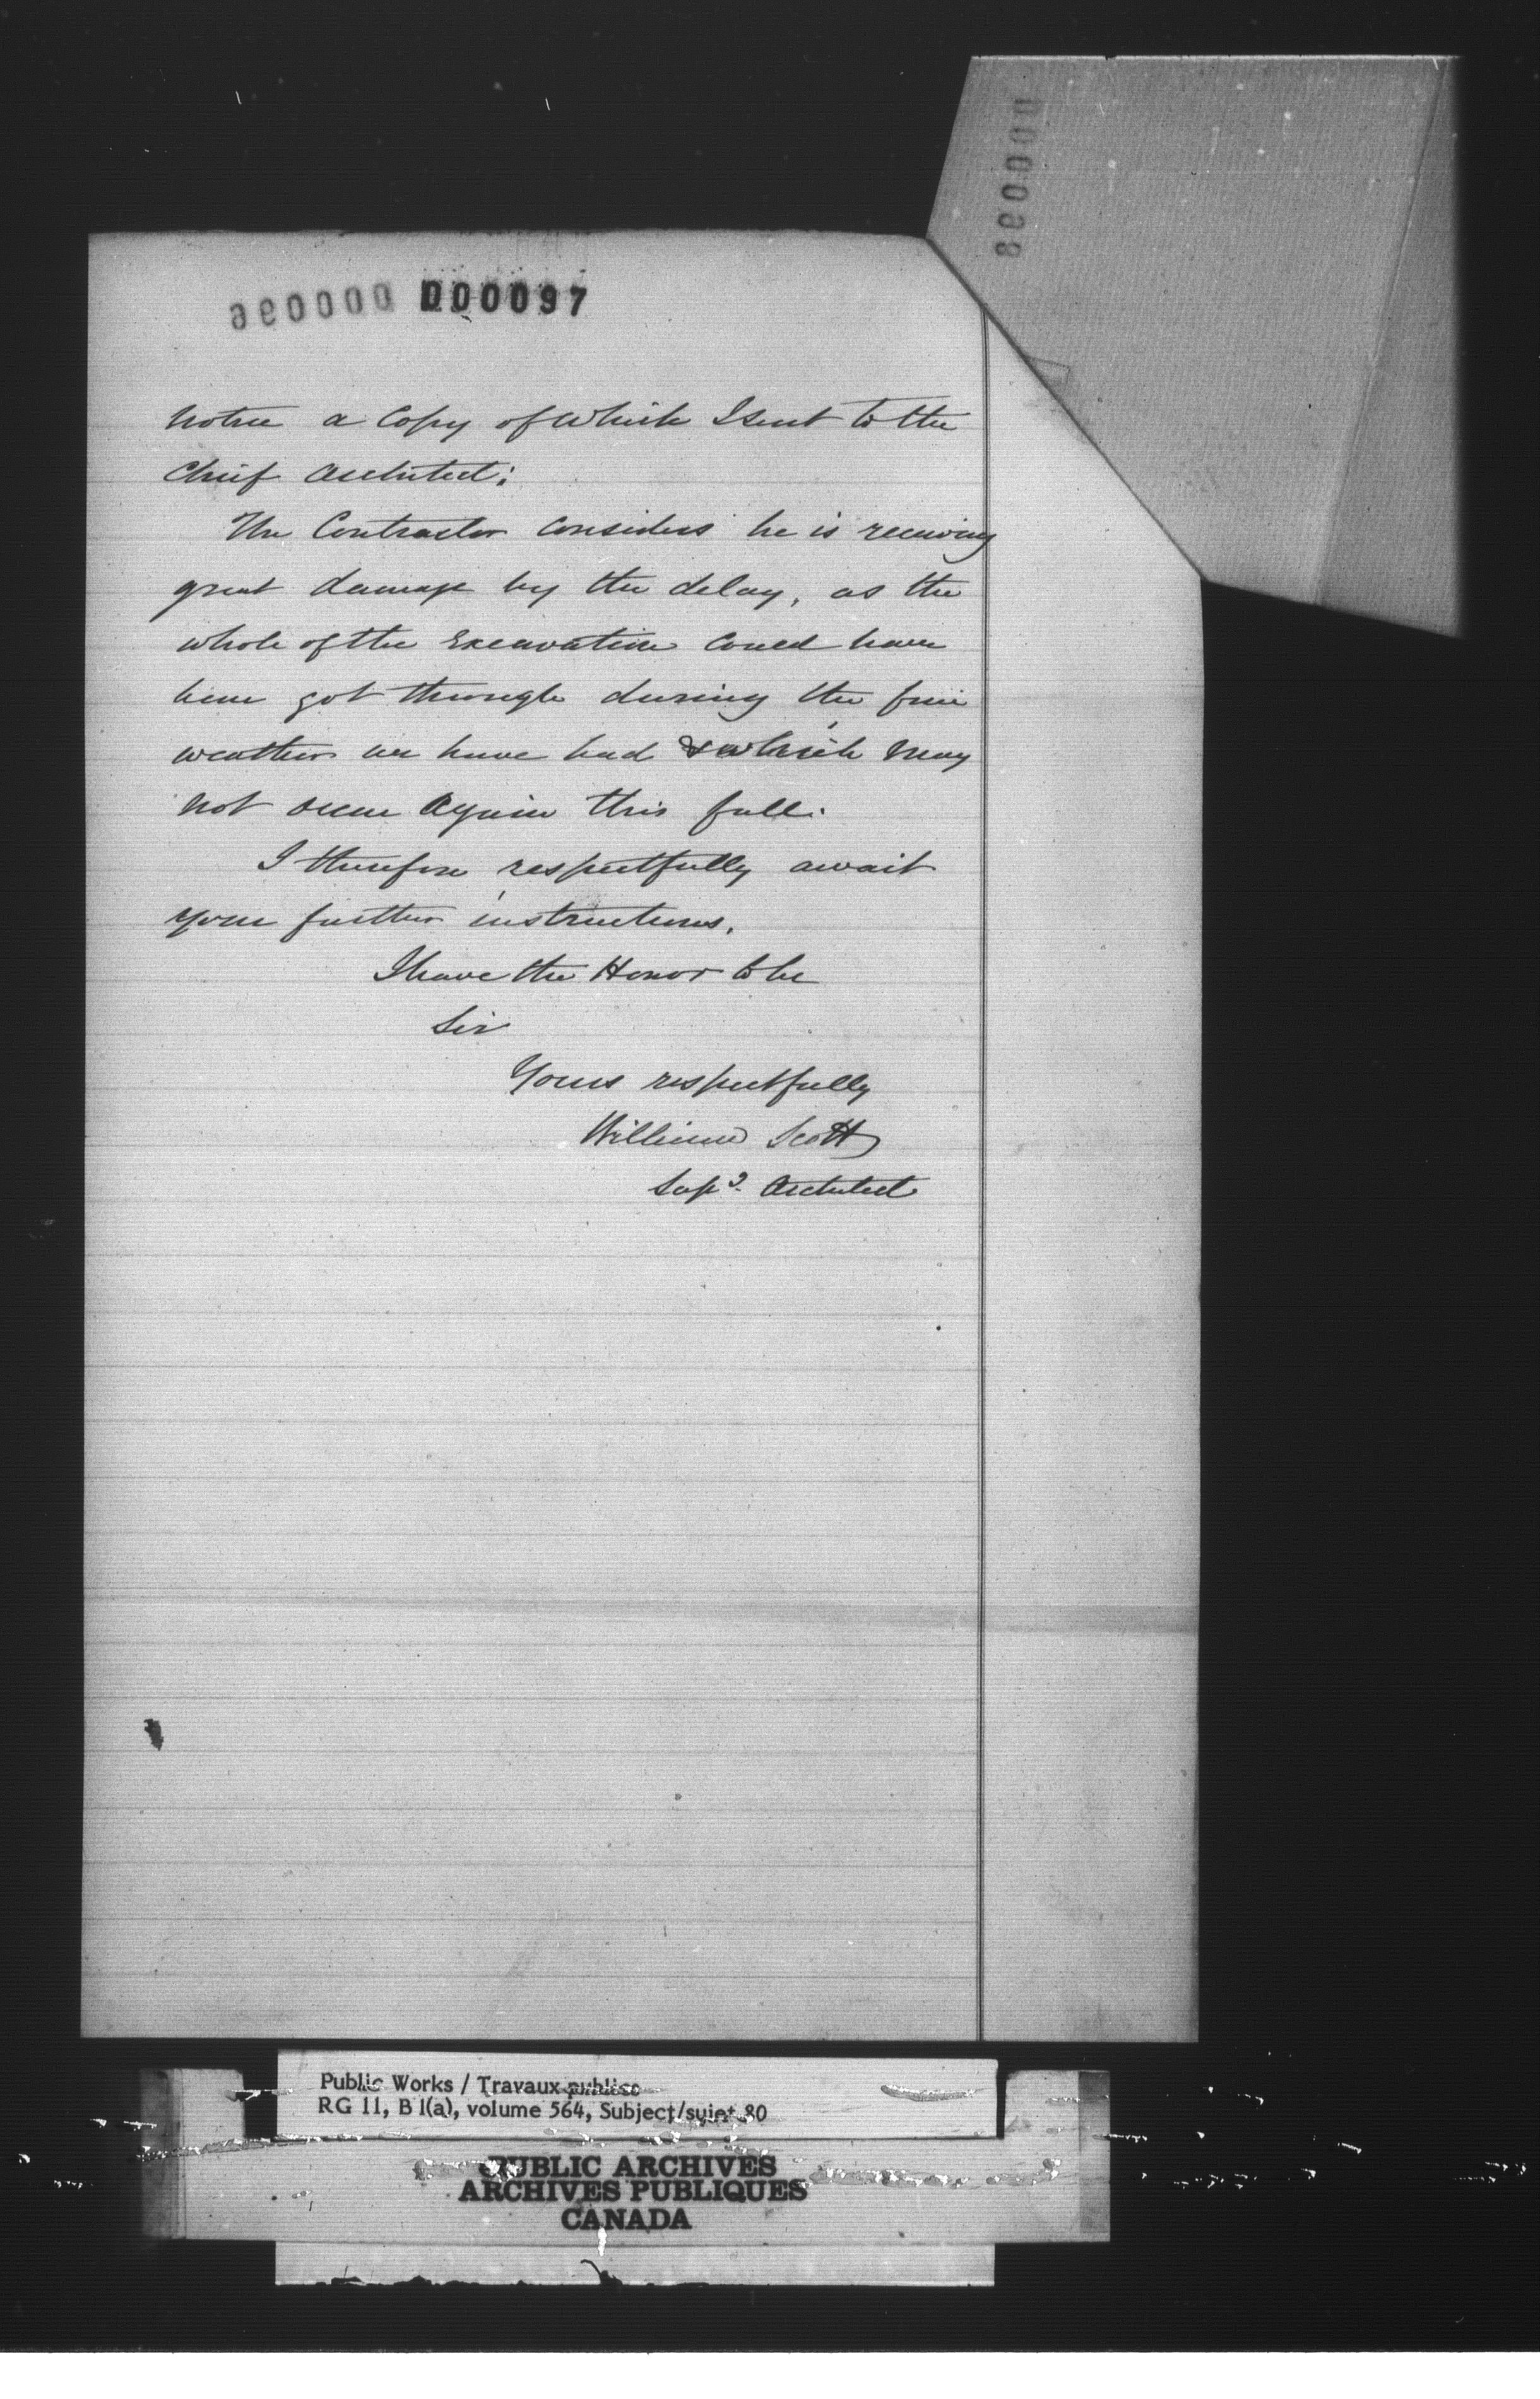 000097
notice a Copy of which I sent to the
Chief Architect;
The Contractor considers he is receiving
great damage by the delay, as the
whole of the Excavation could have
been got through during the fine
weather we have had & which may
not occur again this fall.
I therefore respectfully await
your further instructions.
I have the Honor to be
Sir
Yours respectfully
William Scott
Supt. Architect
Public Works / Travaux publics
RG 11, B 1(a), volume 564, Subject/sujet 80
PUBLIC ARCHIVES
ARCHIVES PUBLIQUES
CANADA